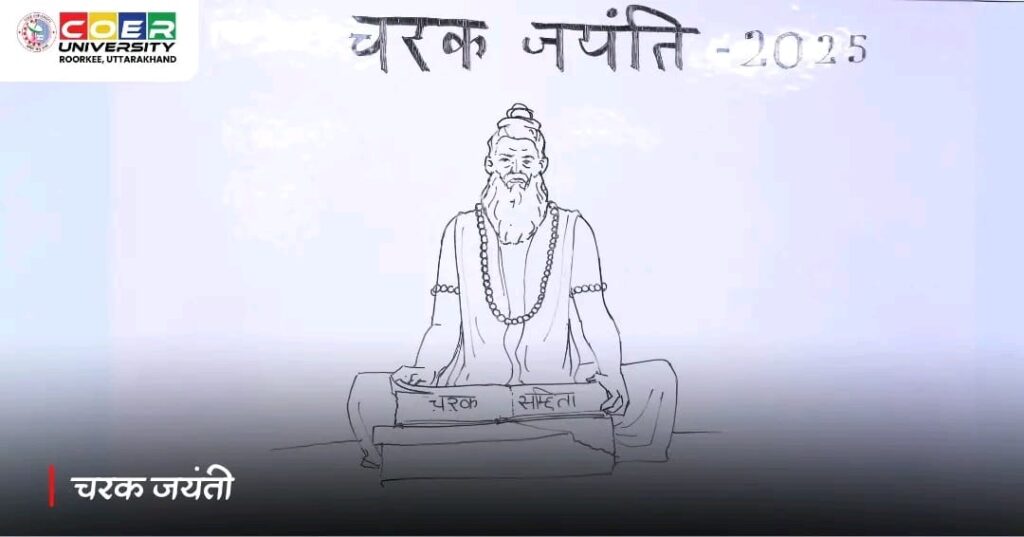 COER
UNIVERSITY
ROORKEE, UTTARAKHAND
चरक जयंति - 2025
चरक सम्हिता
चरक जयंती